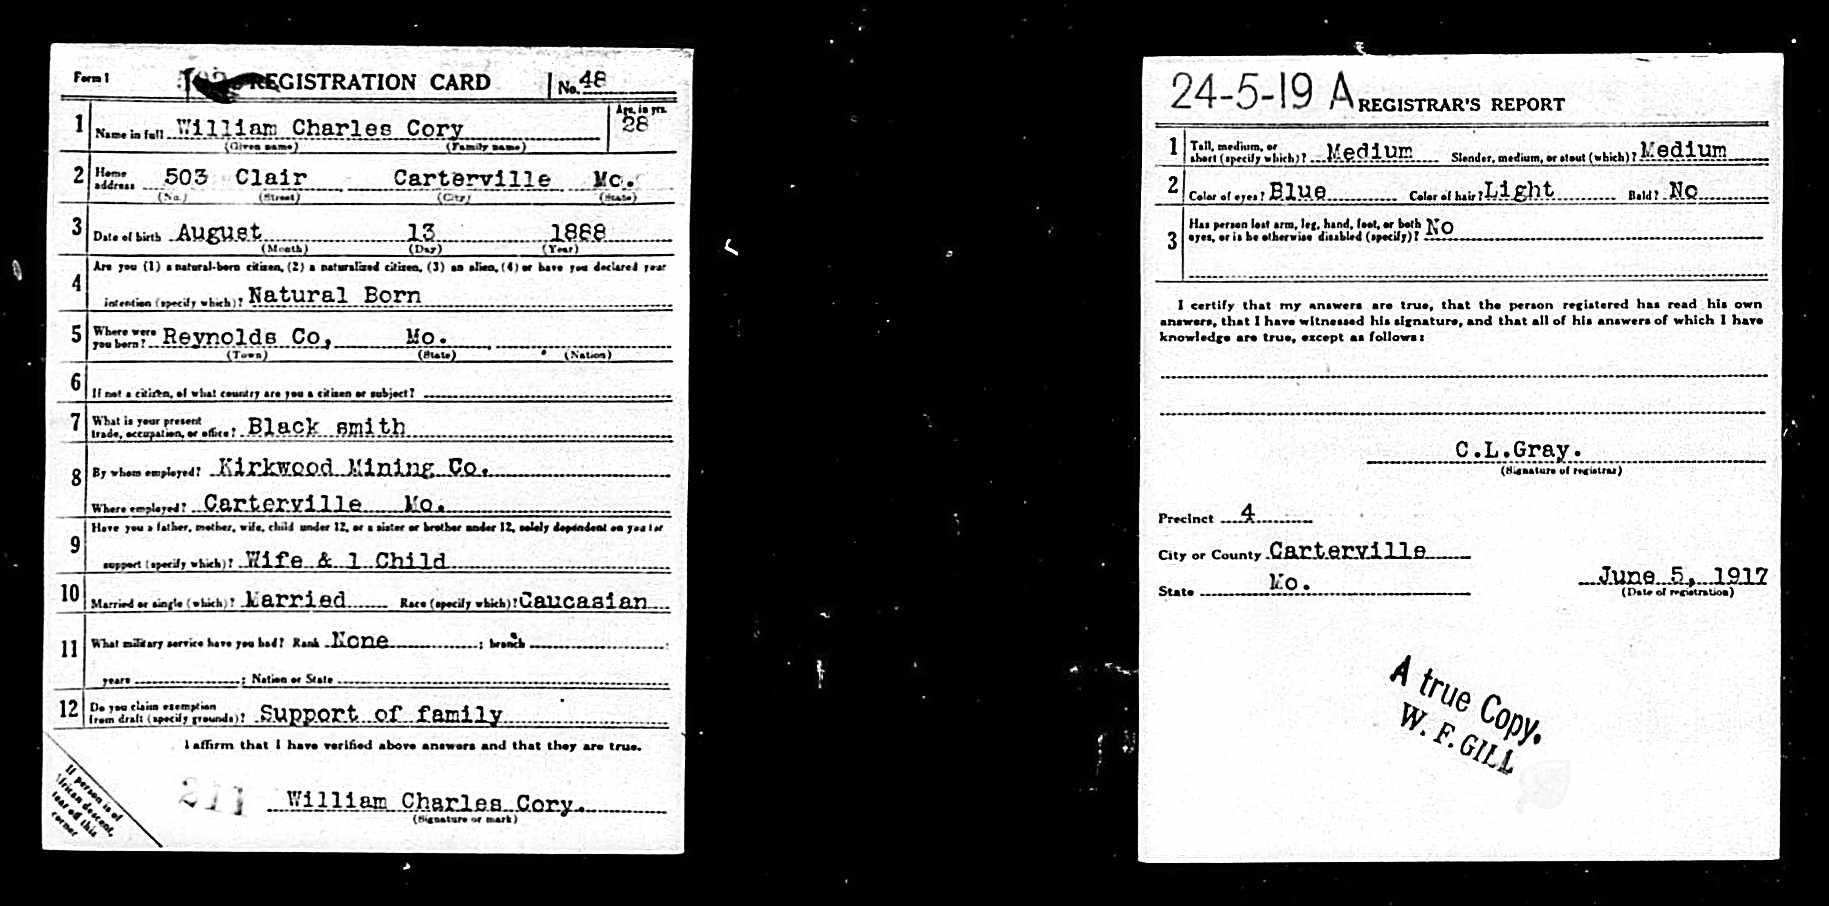 Form 1 REGISTRATION CARD No. 48
1 Name in full William Charles Cory Age, in yrs. 28
(Given name) (Family name)
2 Home address 503 Clair Carterville Mo.
(No.) (Street) (City) (State)
3 Date of birth August 13 1888
(Month) (Day) (Year)
4 Are you (1) a natural-born citizen, (2) a naturalized citizen, (3) an alien, (4) or have you declared your
intention (specify which)? Natural Born
5 Where were you born? Reynolds Co, Mo.
(Town) (State) (Nation)
6 If not a citizen, of what country are you a citizen or subject?
7 What is your present trade, occupation, or office? Black smith
8 By whom employed? Kirkwood Mining Co.
Where employed? Carterville Mo.
9 Have you a father, mother, wife, child under 12, or a sister or brother under 12, solely dependent on you for
support (specify which)? Wife & 1 Child
10 Married or single (which)? Married Race (specify which)? Caucasian
11 What military service have you had? Rank None ; branch
years ; Nation or State
12 Do you claim exemption from draft (specify grounds)? Support of family
I affirm that I have verified above answers and that they are true.
211 William Charles Cory.
(Signature or mark)
If person is of
African descent,
tear off this
corner
24-5-19 A REGISTRAR'S REPORT
1 Tall, medium, or short (specify which)? Medium Slender, medium, or stout (which)? Medium
2 Color of eyes? Blue Color of hair? Light Bald? No
3 Has person lost arm, leg, hand, foot, or both eyes, or is he otherwise disabled (specify)? No
I certify that my answers are true, that the person registered has read his own
answers, that I have witnessed his signature, and that all of his answers of which I have
knowledge are true, except as follows:
C.L.Gray.
(Signature of registrar)
Precinct 4
City or County Carterville
State Mo.
June 5, 1917
(Date of registration)
A true Copy.
W. F. GILL